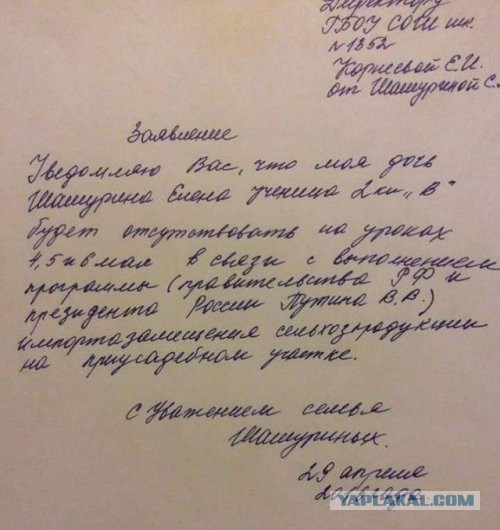 Директору
ГБОУ СОШ шк.
№1352
Корневой Е.И.
от Шашуриной С.
Заявление
Уведомляю Вас, что моя дочь
Шашурина Елена ученица 2 кл „В"
будет отсутствовать на уроках
4,5 и 6 мая в связи с выполнением
программы (правительства РФ и
президента России Путина В.В.)
импортазамещения сельхозпродукции
на приусадебном участке.
С Уважением семья
Шашуриных.
29 апреля
года
YAPLAKAL.COM